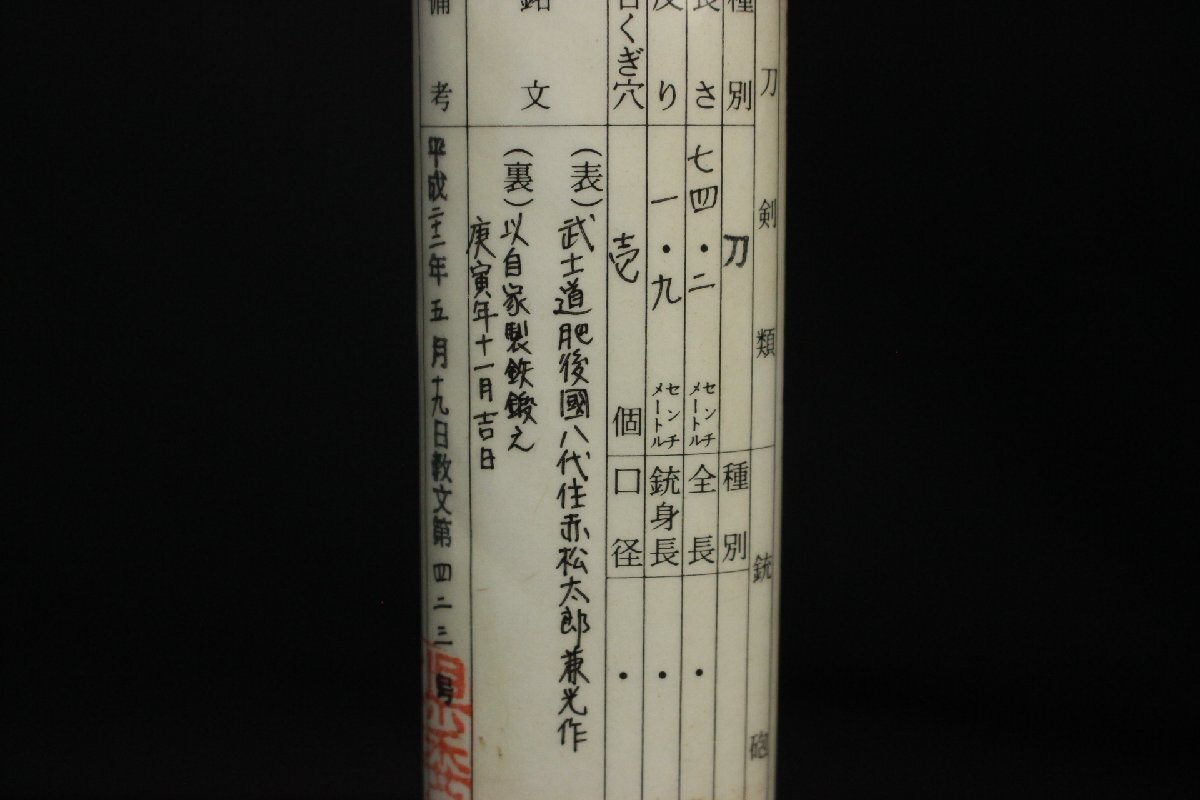 刀剣類
銃砲
種別
刀
種別
長さ
七四・二
センチメートル
全長
・
反り
一・九
センチメートル
銃身長
・
目くぎ穴
壱
個
口径
・
銘文
(表)武士道肥後國八代住赤松太郎兼光作
(裏)以自家製鉄鍛之
庚寅年十一月吉日
備考
平成二十二年五月十九日教文第四二三号